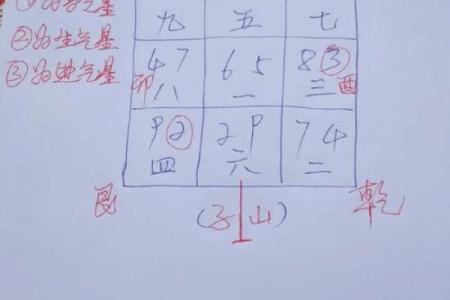 九 五 七
②为生气星
4 7 6 5 8 ③
③为进气星
卯 八 一 三 酉
9 ② 2 9 7 4
四 六 二
艮 (子山) 乾